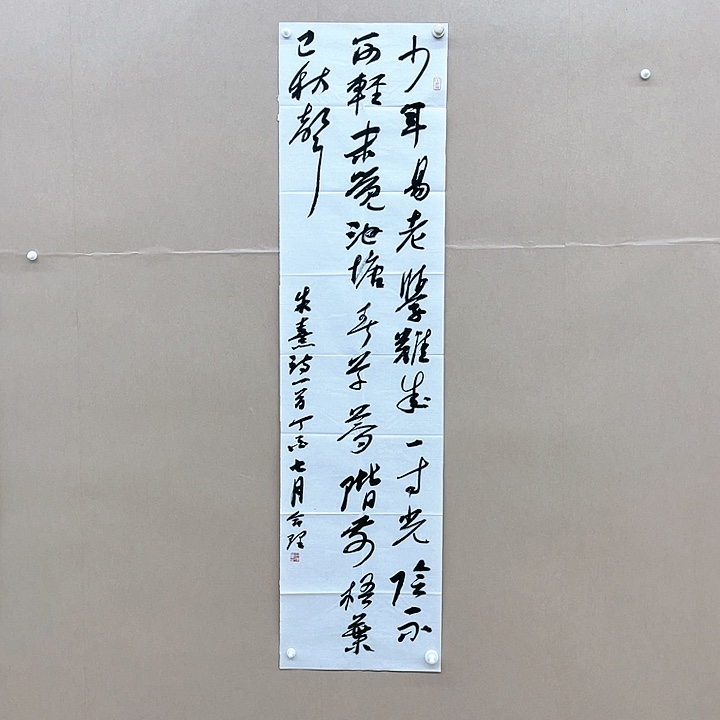 少年易老學難成一寸光陰不
可輕未覺池塘春草夢階前梧葉
已秋聲
朱熹詩一首丁酉七月